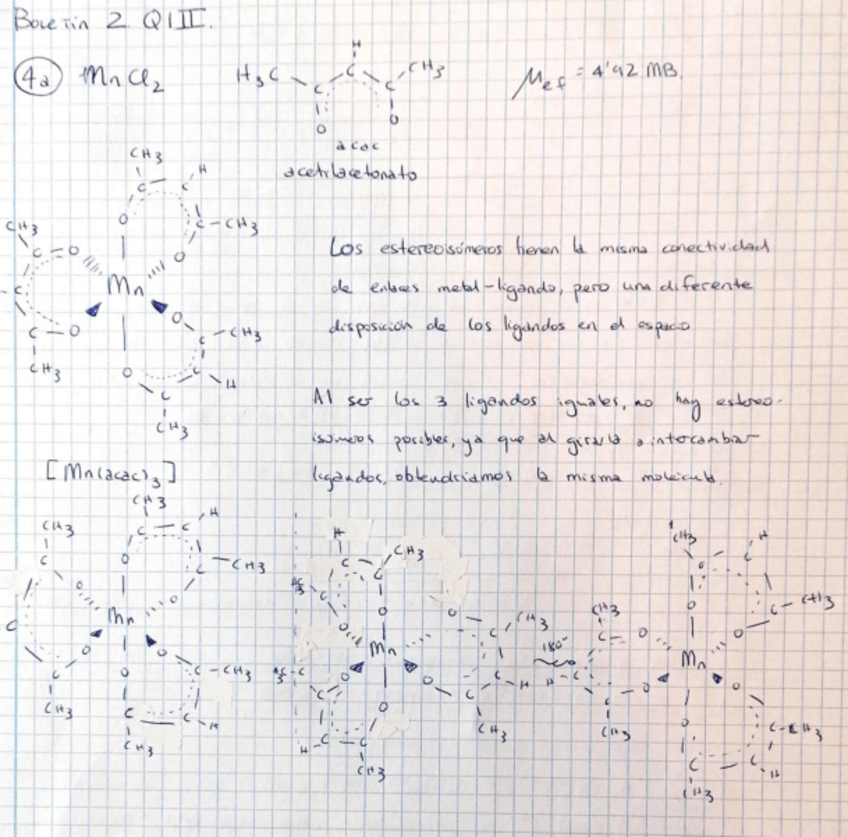 Boletín 2 QIII.
4a MnCl2 μef = 4'92 MB.
H
H3C C C C CH3
O O
acac
acetilacetonato
CH3
C C H
O C-CH3
CH3 C O O
C Mn
C O O C CH3
CH3 O C C H
CH3
Los estereoisómeros tienen la misma conectividad
de enlaces metal-ligando, pero una diferente
disposición de los ligandos en el espacio
Al ser los 3 ligandos iguales, no hay estereo-
isómeros posibles, ya que al girarla o intercambiar
ligandos, obtendríamos la misma molécula.
[Mn(acac)3]
CH3
C C H
CH3 C O C-CH3
O O
C Mn
C O O C-CH3
CH3 O C C H
CH3
H
C C CH3
C O O C CH3
O Mn
C O O C C H
C C O CH3
H CH3
180°
CH3 H
C C
CH3 O C CH3
C O O
C Mn
H C O O
CH3 O C CH3
C C H
CH3